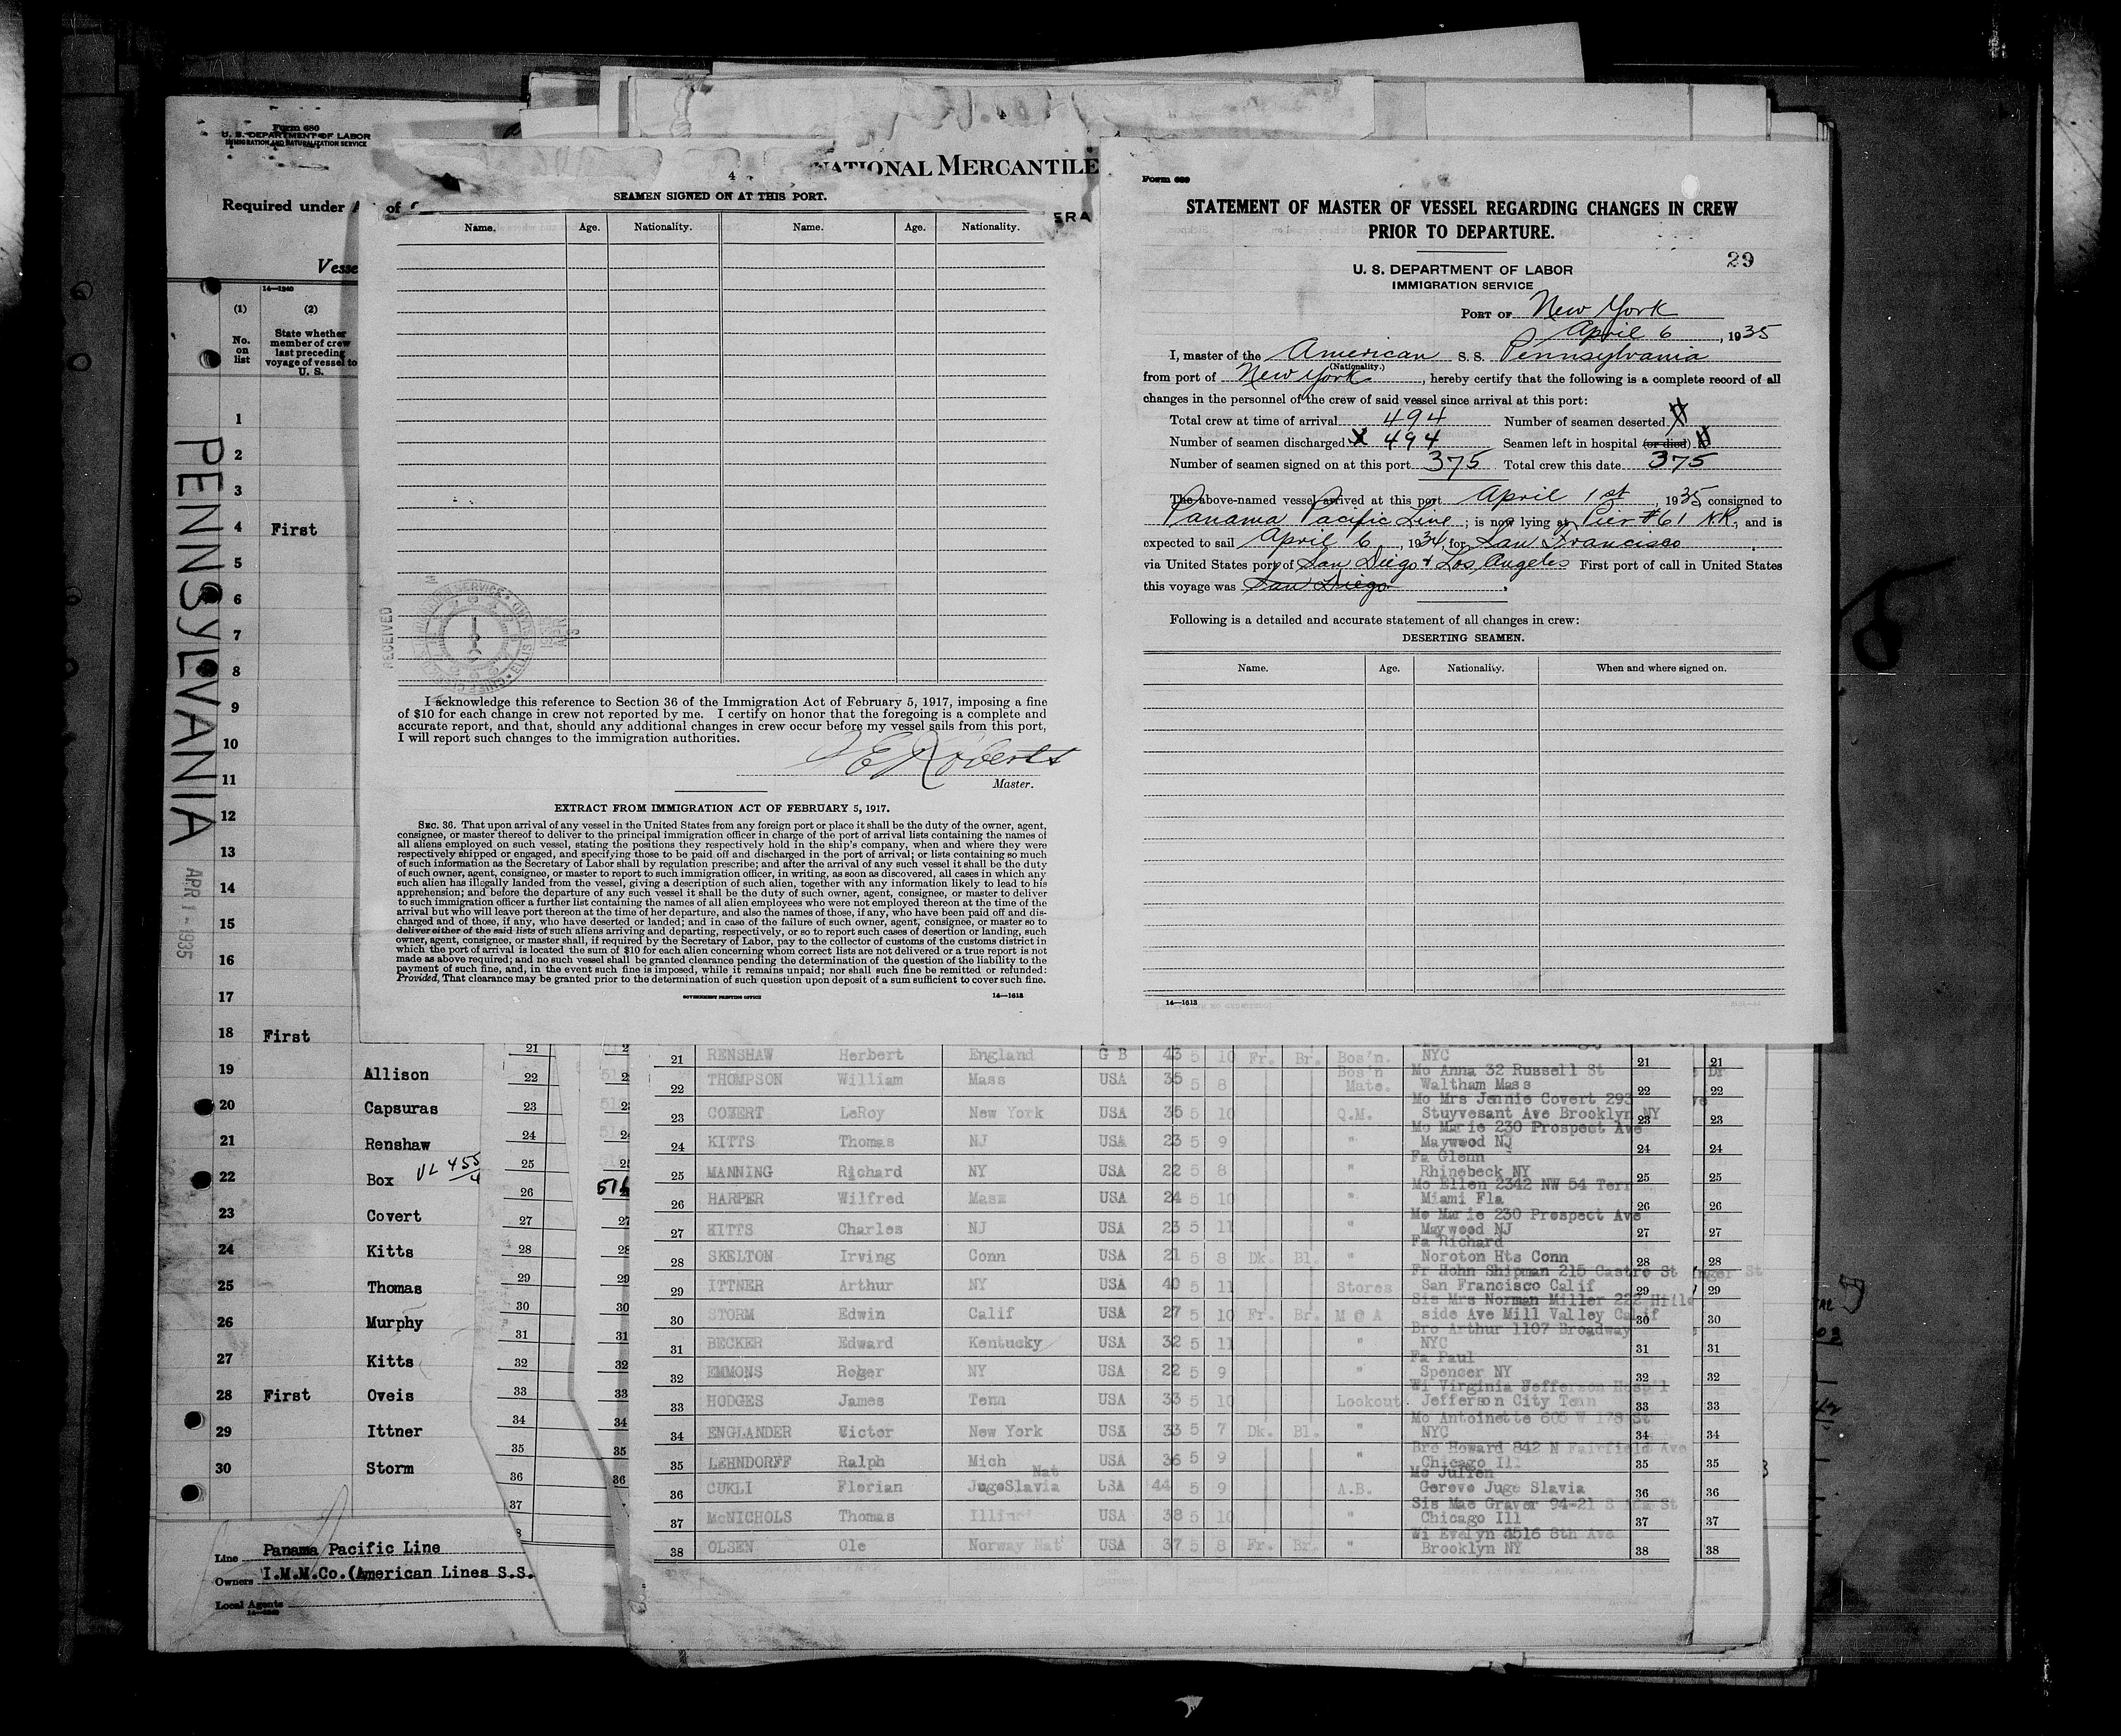 Form 680
U. S. DEPARTMENT OF LABOR
IMMIGRATION AND NATURALIZATION SERVICE
Required under
of
Vesse
14—1240
(1)
(2)
No.
on
list
State whether
member of crew
last preceding
voyage of vessel to
U. S.
1
2
3
4 First
5
6
7
8
9
10
11
12
13
14
15
16
17
18 First
19 Allison
20 Capsuras
21 Renshaw
22 Box VL 455/4
23 Covert
24 Kitts
25 Thomas
26 Murphy
27 Kitts
28 First Oveis
29 Ittner
30 Storm
Line Panama Pacific Line
Owners I.M.M.Co.(American Lines S.S.
Local Agents
PENNSYLVANIA
APR 1 - 1935
NATIONAL MERCANTILE
4
SEAMEN SIGNED ON AT THIS PORT.
ERA
Name. Age. Nationality. Name. Age. Nationality.
RECEIVED
I acknowledge this reference to Section 36 of the Immigration Act of February 5, 1917, imposing a fine
of $10 for each change in crew not reported by me. I certify on honor that the foregoing is a complete and
accurate report, and that, should any additional changes in crew occur before my vessel sails from this port,
I will report such changes to the immigration authorities.
Roberts
Master.
EXTRACT FROM IMMIGRATION ACT OF FEBRUARY 5, 1917.
SEC. 36. That upon arrival of any vessel in the United States from any foreign port or place it shall be the duty of the owner, agent,
consignee, or master thereof to deliver to the principal immigration officer in charge of the port of arrival lists containing the names of
all aliens employed on such vessel, stating the positions they respectively hold in the ship's company, when and where they were
respectively shipped or engaged, and specifying those to be paid off and discharged in the port of arrival; or lists containing so much
of such information as the Secretary of Labor shall by regulation prescribe; and after the arrival of any such vessel it shall be the duty
of such owner, agent, consignee, or master to report to such immigration officer, in writing, as soon as discovered, all cases in which any
such alien has illegally landed from the vessel, giving a description of such alien, together with any information likely to lead to his
apprehension; and before the departure of any such vessel it shall be the duty of such owner, agent, consignee, or master to deliver
to such immigration officer a further list containing the names of all alien employees who were not employed thereon at the time of the
arrival but who will leave port thereon at the time of her departure, and also the names of those, if any, who have been paid off and dis-
charged and of those, if any, who have deserted or landed; and in case of the failure of such owner, agent, consignee, or master so to
deliver either of the said lists of such aliens arriving and departing, respectively, or so to report such cases of desertion or landing, such
owner, agent, consignee, or master shall, if required by the Secretary of Labor, pay to the collector of customs of the customs district in
which the port of arrival is located the sum of $10 for each alien concerning whom correct lists are not delivered or a true report is not
made as above required; and no such vessel shall be granted clearance pending the determination of the question of the liability to the
payment of such fine, and, in the event such fine is imposed, while it remains unpaid; nor shall such fine be remitted or refunded:
Provided, That clearance may be granted prior to the determination of such question upon deposit of a sum sufficient to cover such fine.
GOVERNMENT PRINTING OFFICE 14—1613
Form 689
STATEMENT OF MASTER OF VESSEL REGARDING CHANGES IN CREW
PRIOR TO DEPARTURE.
29
U. S. DEPARTMENT OF LABOR
IMMIGRATION SERVICE
PORT OF New York
April 6, 1935
I, master of the American S. S. Pennsylvania
(Nationality.)
from port of New York, hereby certify that the following is a complete record of all
changes in the personnel of the crew of said vessel since arrival at this port:
Total crew at time of arrival 494 Number of seamen deserted
Number of seamen discharged 494 Seamen left in hospital (or died)
Number of seamen signed on at this port 375 Total crew this date 375
The above-named vessel arrived at this port April 1st, 1935 consigned to
Panama Pacific Line; is now lying at Pier #61 N.R., and is
expected to sail April 6, 1934, for San Francisco
via United States port of San Diego & Los Angeles First port of call in United States
this voyage was San Diego.
Following is a detailed and accurate statement of all changes in crew:
DESERTING SEAMEN.
Name. Age. Nationality. When and where signed on.
14—1613
21 RENSHAW Herbert England G B 43 5 10 Fr. Br. Bos'n. NYC 21
22 THOMPSON William Mass USA 35 5 8 Bos'n Mate. Mo Anna 32 Russell St Waltham Mass 22
23 COVERT LeRoy New York USA 35 5 10 Q.M. Mo Mrs Jennie Covert 293 Stuyvesant Ave Brooklyn NY 23
24 KITTS Thomas NJ USA 23 5 9 " Mo Marie 230 Prospect Ave Maywood NJ 24
25 MANNING Richard NY USA 22 5 8 " Fa Glenn Rhinebeck NY 25
26 HARPER Wilfred Mass USA 24 5 10 " Mo Ellen 2342 NW 54 Terr Miami Fla 26
27 KITTS Charles NJ USA 23 5 11 " Mo Marie 230 Prospect Ave Maywood NJ 27
28 SKELTON Irving Conn USA 21 5 8 Dk. Bl. " Fa Richard Noroton Hts Conn 28
29 ITTNER Arthur NY USA 40 5 11 Stores Fr Hohn Shipman 215 Castro St San Francisco Calif 29
30 STORM Edwin Calif USA 27 5 10 Fr. Br. M @ A Sis Mrs Norman Miller 222 Hill side Ave Mill Valley Calif 30
31 BECKER Edward Kentucky USA 32 5 11 " Bro Arthur 1107 Broadway NYC 31
32 EMMONS Roger NY USA 22 5 9 " Fa Paul Spencer NY 32
33 HODGES James Tenn USA 33 5 10 Lookout Wi Virginia Jefferson Hospil Jefferson City Tenn 33
34 ENGLANDER Victor New York USA 33 5 7 Dk. Bl. " Mo Antoinette 605 W 178 St NYC 34
35 LEHNDORFF Ralph Mich USA 36 5 9 " Bro Howard 842 N Fairfield Ave Chicago Ill 35
36 CUKLI Florian JugoSlavia Nat USA 44 5 9 A.B. Mo Julien Gerovo Jugo Slavia 36
37 McNICHOLS Thomas Illinoi USA 38 5 10 " Sis Mae Graver 94-21 St Chicago Ill 37
38 OLSEN Ole Norway Nat USA 37 5 8 Fr. Br. " Wi Evelyn 3516 8th Ave Brooklyn NY 38